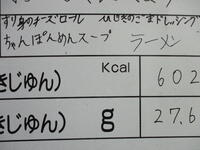 すり身のチーズロール ひじきのごまドレッシング
ちゃんぽんめんスープ ラーメン
きじゅん) Kcal 602
きじゅん) g 27.6